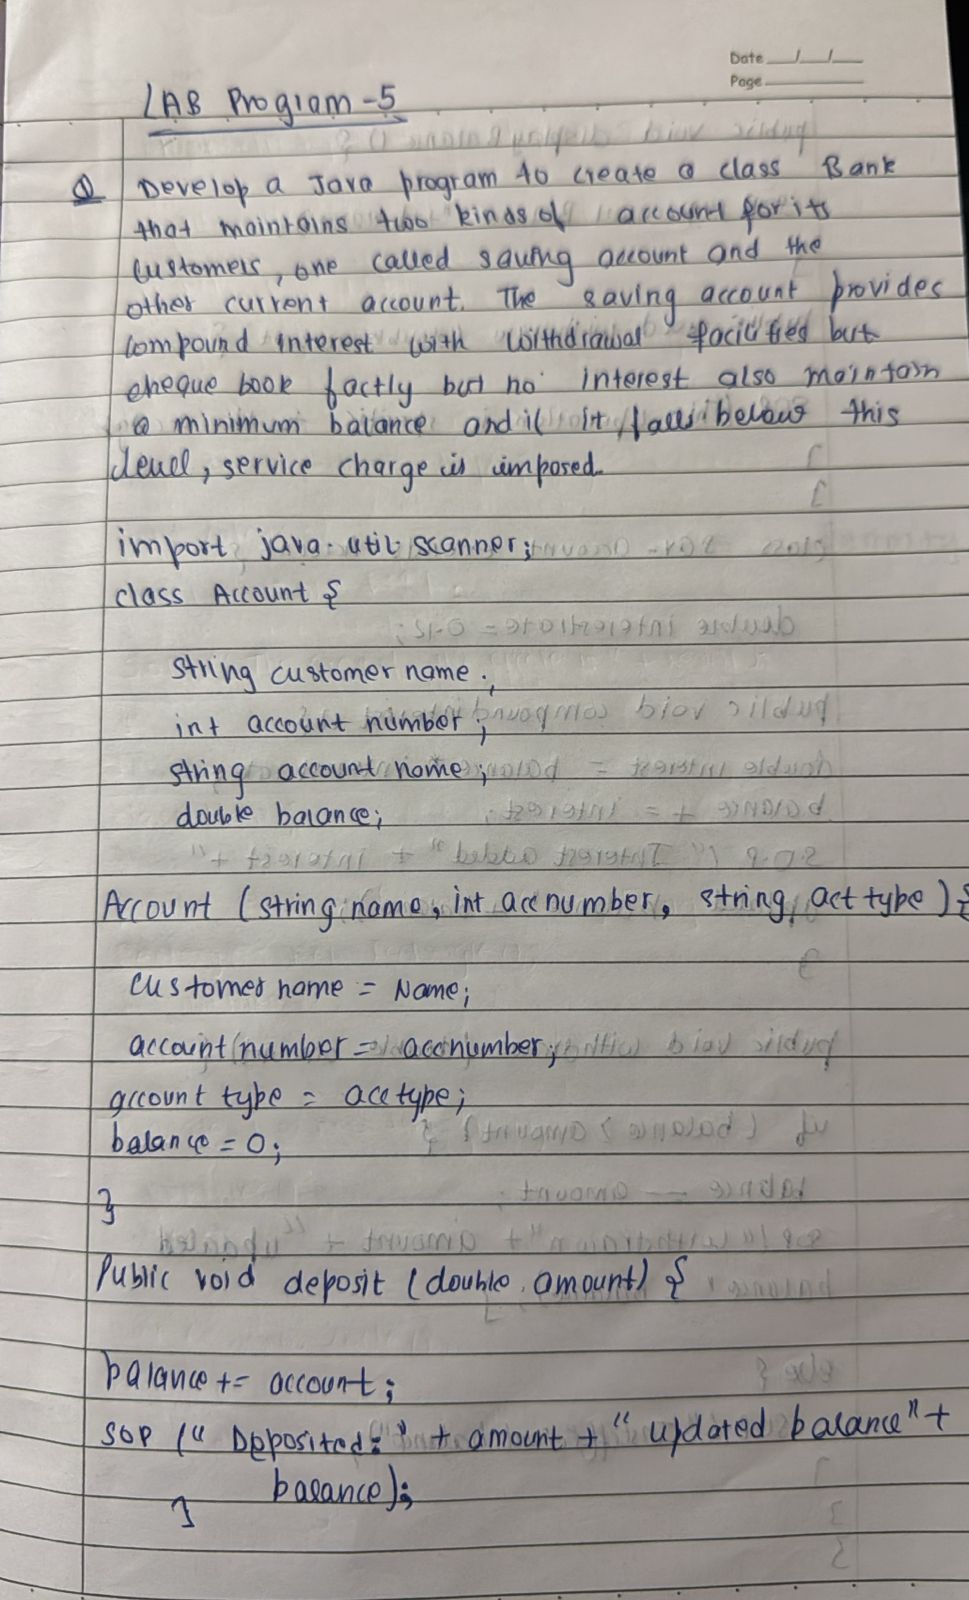 Date __/__/__
Page ______
LAB Program - 5
Q Develop a Java program to create a class Bank
that maintains two kinds of account for its
customers, one called saving account and the
other current account. The saving account provides
compound interest with withdrawal facilities but
cheque book factly but no interest also maintain
a minimum balance and if it falls below this
level, service charge is imposed.
import java.util.scanner;
class Account {
string customer name;
int account number;
string account name;
double balance;
Account (string name, int acc number, string, act type) {
customer name = Name;
account number = acc number;
account type = acc type;
balance = 0;
}
Public void deposit (double amount) {
balance += account;
SOP (" Deposited: " + amount + " updated balance" +
balance);
}